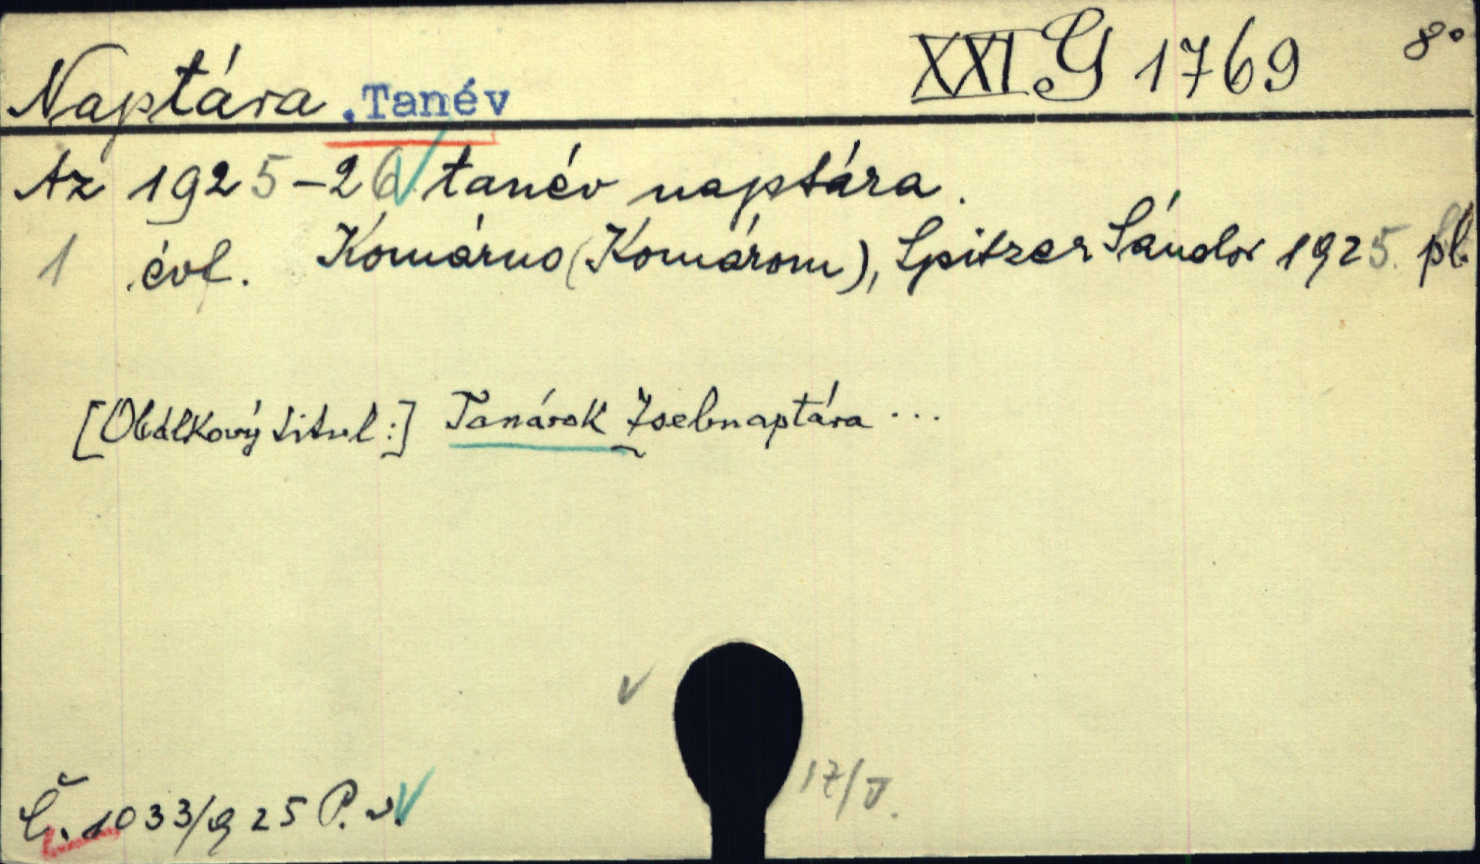 Naptára .Tanév XXI G 1769 8°
Az 1925-26 tanév naptára.
1 évf. Komárno (Komárom), Spitzer Sándor 1925. pl.
[Obálkový titul:] Tanárok Zsebnaptára ...
17/V.
Č. 1033/925 P. v.